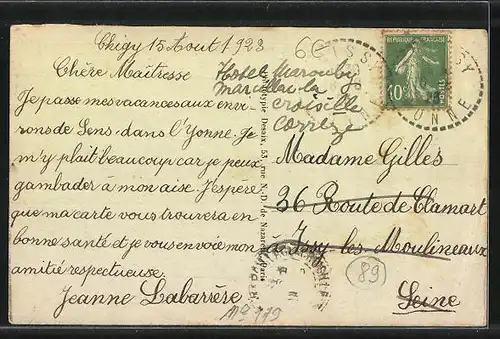 Chigy 15 Aout 1928
Chère Maîtresse
Je passe mes vacances aux envi-
rons de Sens dans l'Yonne. Je
m'y plait beaucoup car je peux
gambader à mon aise. J'espère
que ma carte vous trouvera en
bonne santé et je vous envoie mon
amitié respectueuse.
Jeanne Labarrère
Hotel Marouby
Marcillac la
croisille
corrèze
Phototypie Dessaix, 53, rue N. D. de Nazareth, Paris
REPUBLIQUE FRANÇAISE
10c
POSTES
YONNE
Madame Gilles
36 Route de Clamart
à Issy-les-Moulineaux
Seine
89